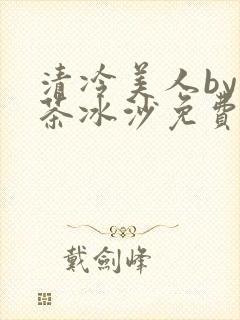 清冷美人by
茶冰沙免費
戴劍峰